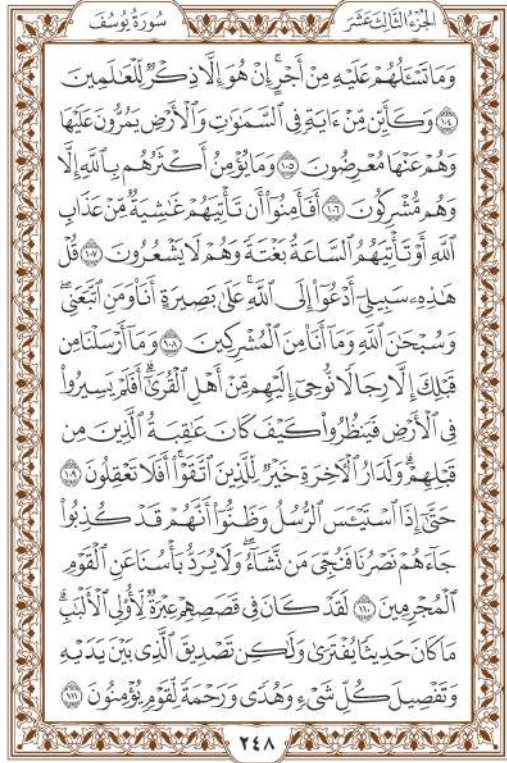 الجزء الثالث عشر
سورة يوسف
وَمَا تَسْـَٔلُهُمْ عَلَيْهِ مِنْ أَجْرٍ ۚ إِنْ هُوَ إِلَّا ذِكْرٌ لِّلْعَـٰلَمِينَ
١٠٤ وَكَأَيِّن مِّنْ ءَايَةٍ فِى ٱلسَّمَـٰوَٰتِ وَٱلْأَرْضِ يَمُرُّونَ عَلَيْهَا
وَهُمْ عَنْهَا مُعْرِضُونَ ١٠٥ وَمَا يُؤْمِنُ أَكْثَرُهُم بِٱللَّهِ إِلَّا
وَهُم مُّشْرِكُونَ ١٠٦ أَفَأَمِنُوٓا۟ أَن تَأْتِيَهُمْ غَـٰشِيَةٌ مِّنْ عَذَابِ
ٱللَّهِ أَوْ تَأْتِيَهُمُ ٱلسَّاعَةُ بَغْتَةً وَهُمْ لَا يَشْعُرُونَ ١٠٧ قُلْ
هَـٰذِهِۦ سَبِيلِىٓ أَدْعُوٓا۟ إِلَى ٱللَّهِ ۚ عَلَىٰ بَصِيرَةٍ أَنَا۠ وَمَنِ ٱتَّبَعَنِى ۖ
وَسُبْحَـٰنَ ٱللَّهِ وَمَآ أَنَا۠ مِنَ ٱلْمُشْرِكِينَ ١٠٨ وَمَآ أَرْسَلْنَا مِن
قَبْلِكَ إِلَّا رِجَالًا نُّوحِىٓ إِلَيْهِم مِّنْ أَهْلِ ٱلْقُرَىٰٓ ۗ أَفَلَمْ يَسِيرُوا۟
فِى ٱلْأَرْضِ فَيَنظُرُوا۟ كَيْفَ كَانَ عَـٰقِبَةُ ٱلَّذِينَ مِن
قَبْلِهِمْ ۗ وَلَدَارُ ٱلْـَٔاخِرَةِ خَيْرٌ لِّلَّذِينَ ٱتَّقَوْا۟ ۗ أَفَلَا تَعْقِلُونَ ١٠٩
حَتَّىٰٓ إِذَا ٱسْتَيْـَٔسَ ٱلرُّسُلُ وَظَنُّوٓا۟ أَنَّهُمْ قَدْ كُذِبُوا۟
جَآءَهُمْ نَصْرُنَا فَنُجِّىَ مَن نَّشَآءُ ۖ وَلَا يُرَدُّ بَأْسُنَا عَنِ ٱلْقَوْمِ
ٱلْمُجْرِمِينَ ١١٠ لَقَدْ كَانَ فِى قَصَصِهِمْ عِبْرَةٌ لِّأُو۟لِى ٱلْأَلْبَـٰبِ ۗ
مَا كَانَ حَدِيثًا يُفْتَرَىٰ وَلَـٰكِن تَصْدِيقَ ٱلَّذِى بَيْنَ يَدَيْهِ
وَتَفْصِيلَ كُلِّ شَىْءٍ وَهُدًى وَرَحْمَةً لِّقَوْمٍ يُؤْمِنُونَ ١١١
٢٤٨